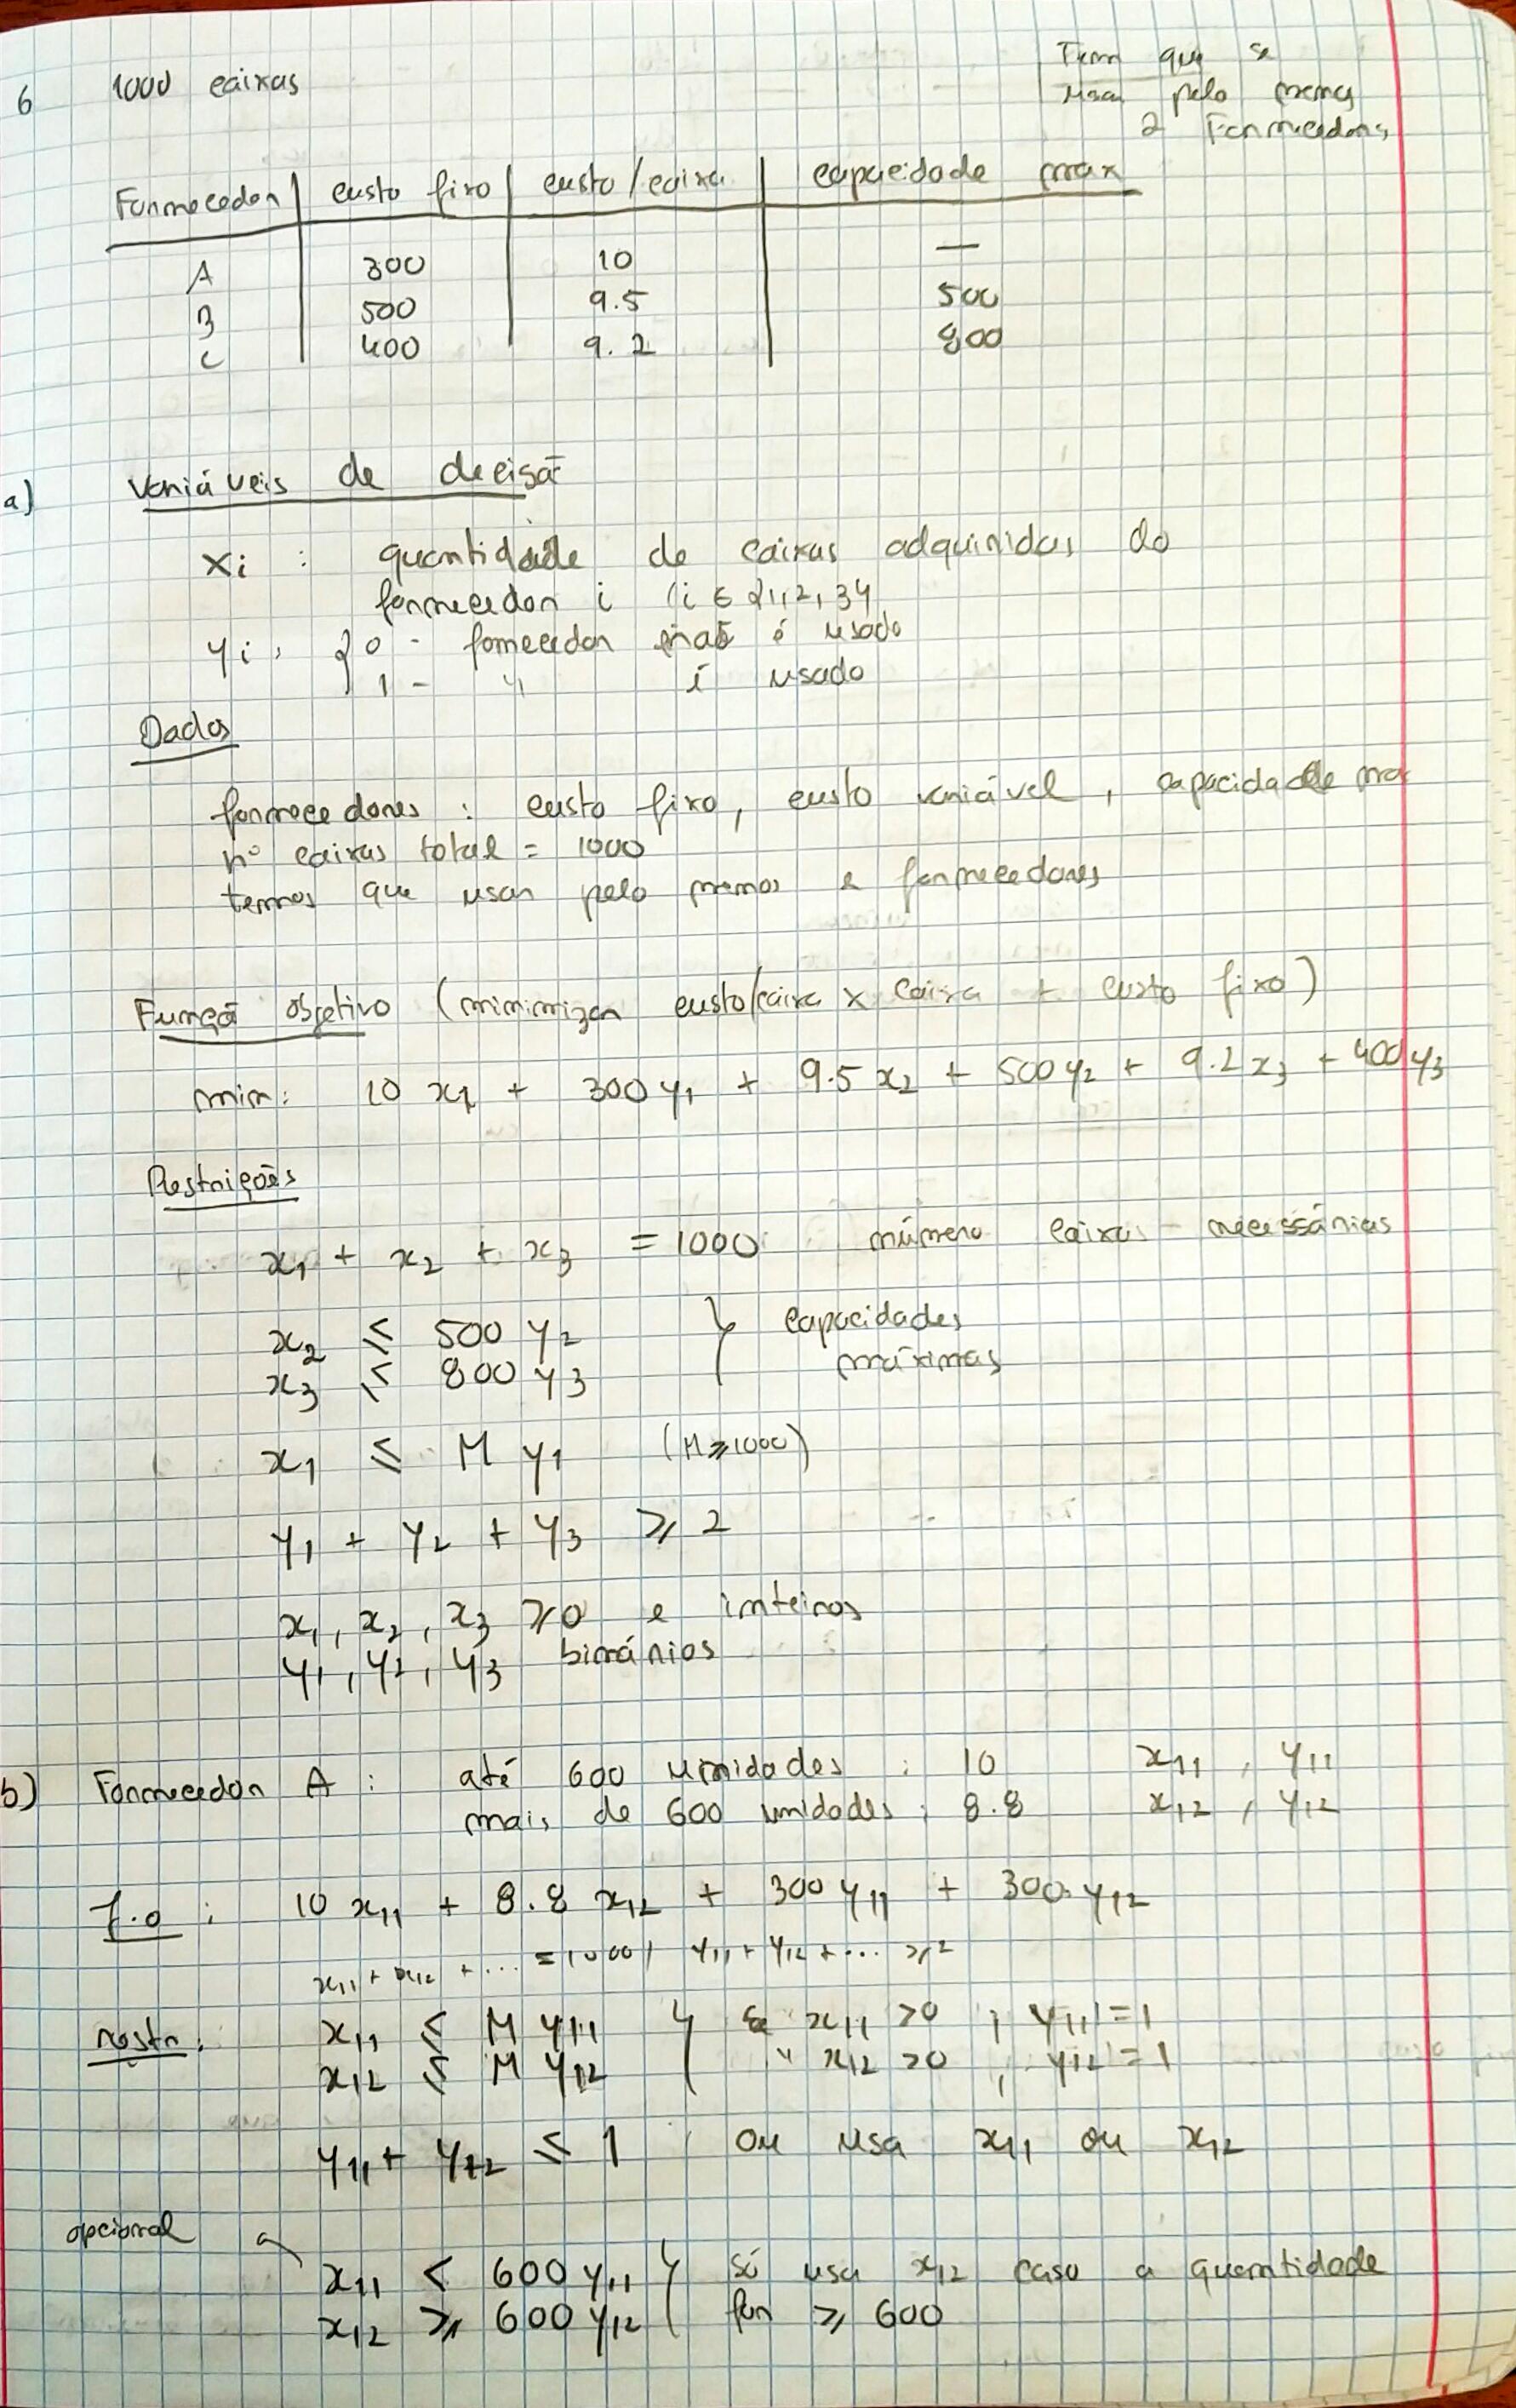 6 1000 caixas
Tem que se
usar pelo menos
2 Fornecedores
Fornecedor | custo fixo | custo/caixa | capacidade max
A 300 10 —
B 500 9.5 500
C 400 9.2 800
a) Variáveis de decisã
xi : quantidade de caixas adquiridas do
fornecedor i (i ∈ {1,2,3}
yi : { 0 - fornecedor não é usado
1 - " é usado
Dados
fornecedores : custo fixo, custo variável, capacidade max
nº caixas total = 1000
temos que usar pelo menos 2 fornecedores
Funçã objetivo (minimizar custo/caixa x caixa + custo fixo)
min: 10 x1 + 300 y1 + 9.5 x2 + 500 y2 + 9.2 x3 + 400 y3
Restrições
x1 + x2 + x3 = 1000 número caixas necessárias
x2 ≤ 500 y2 } capacidades
x3 ≤ 800 y3 máximas
x1 ≤ M y1 (M ≥ 1000)
y1 + y2 + y3 ≥ 2
x1, x2, x3 ≥ 0 e inteiros
y1, y2, y3 binários
b) Fornecedor A : até 600 unidades : 10 x11, y11
mais de 600 unidades : 8.8 x12, y12
f.o : 10 x11 + 8.8 x12 + 300 y11 + 300 y12
x11 + x12 + ... = 1000, y11 + y12 + ... ≥ 2
restr. : x11 ≤ M y11 } Se x11 > 0, y11 = 1
x12 ≤ M y12 " x12 > 0, y12 = 1
y11 + y12 ≤ 1 ou usa x11 ou x12
opcional
x11 < 600 y11 } só usa x12 caso a quantidade
x12 ≥ 600 y12 for ≥ 600